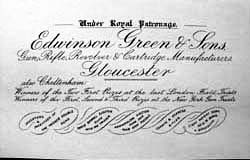 Under Royal Patronage.
Edwinson Green & Sons,
Gun, Rifle, Revolver & Cartridge Manufacturers
Gloucester
also Cheltenham.
Winners of the Two First Prizes at the last London Field Trials
Winners of the First, Second & Third Prizes at the New York Gun Trials